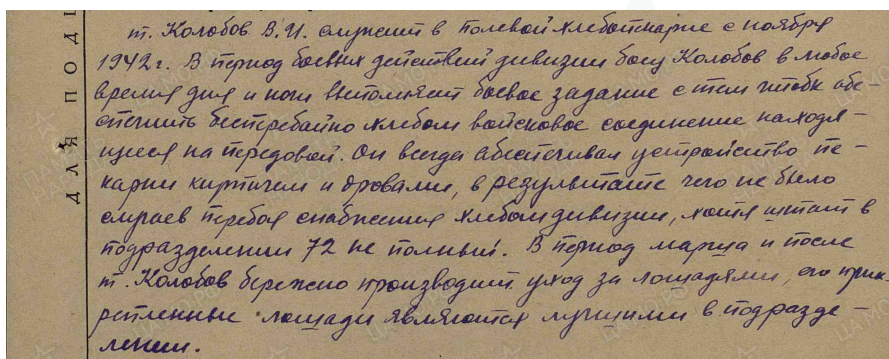 т. Колобов В.И. служит в полевой хлебопекарне с ноября
1942 г. В период боевых действий дивизии боец Колобов в любое
время дня и ночи выполняет боевое задание с тем чтобы обе-
спечить бесперебойно хлебом войсковое соединение находя-
щиеся на передовой. Он всегда обеспечивал устройство пе-
карни кирпичем и дровами, в результате чего не было
случаев перебоя снабжения хлебом дивизии, хотя штат в
подразделении 72 не полный. В период марша и после
т. Колобов бережно производит уход за лошадями, его прик-
репленные лошади являются лучшими в подразде-
лении.
ДЛЯ ПОД